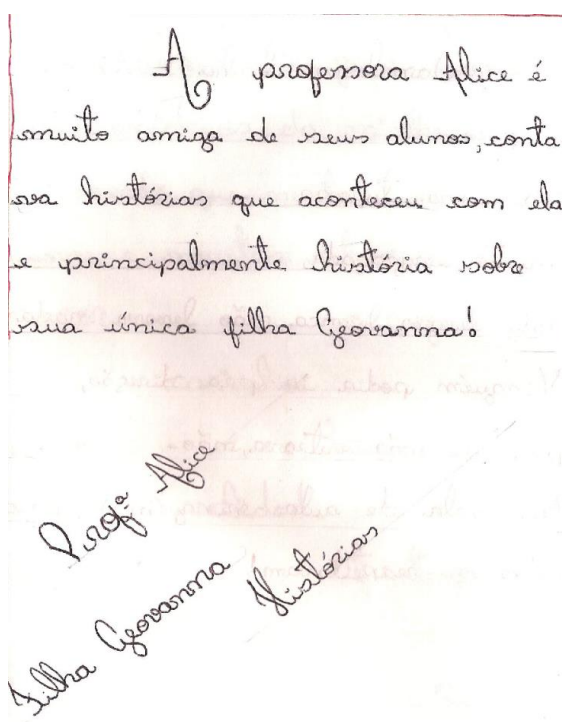 A professora Alice é
muito amiga de seus alunos, conta
va histórias que aconteceu com ela
e principalmente história sobre
sua única filha Geovanna!
Profª Alice
Filha Geovanna
Histórias